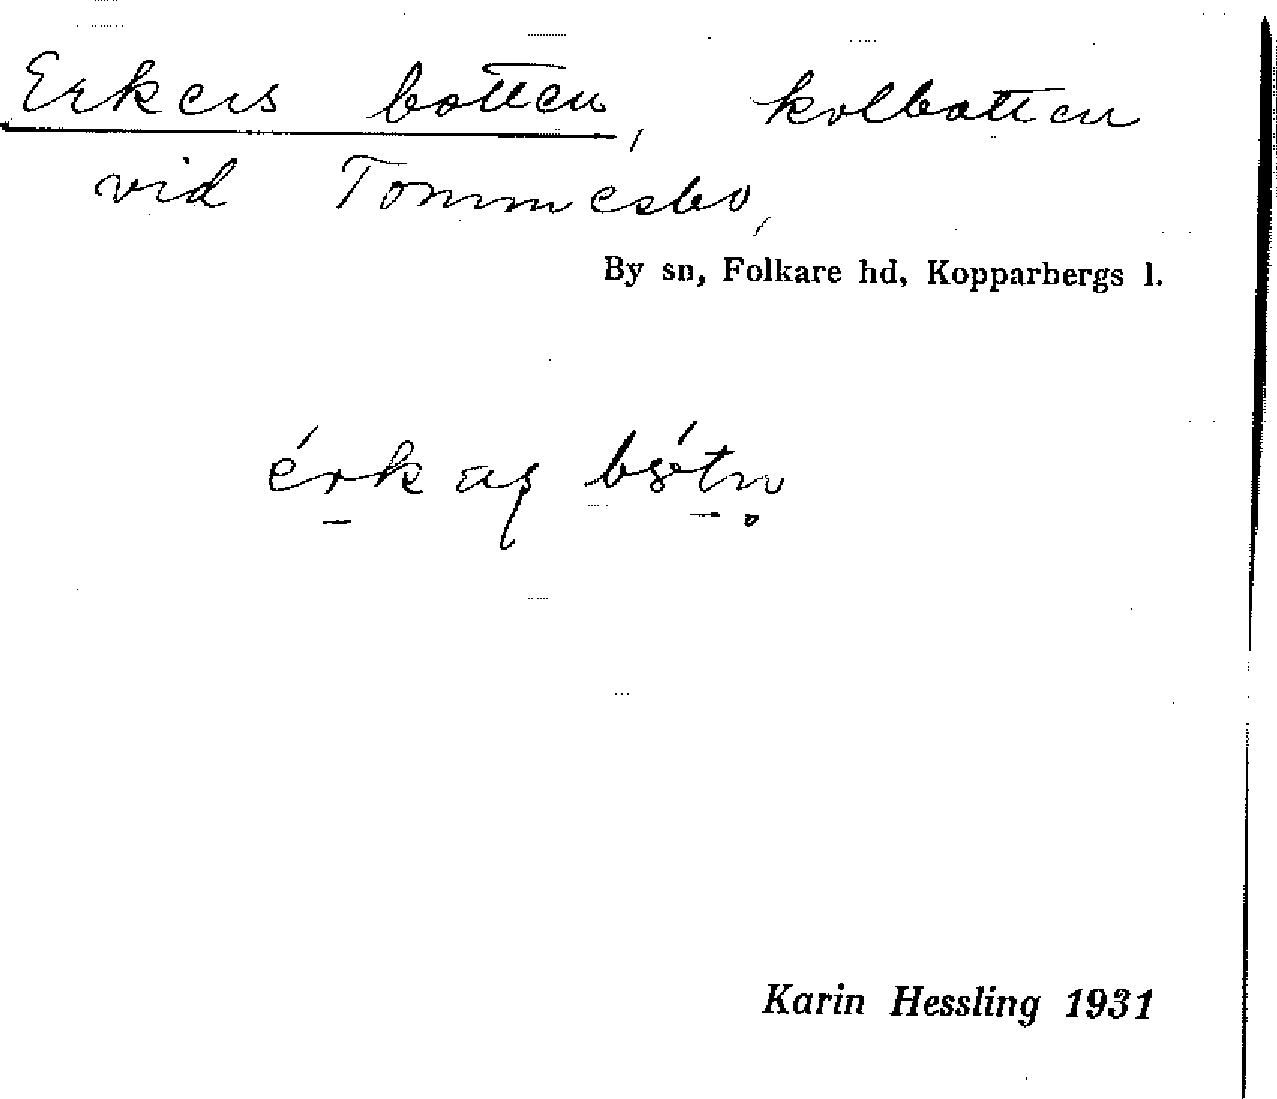 Erkers botten, kolbotten
vid Tommesbo,
By sn, Folkare hd, Kopparbergs l.
Karin Hessling 1931